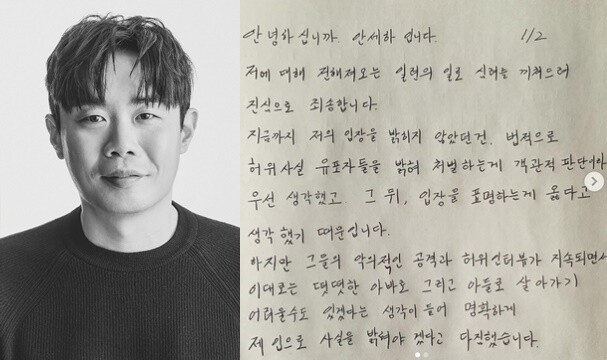 안녕하십니까. 안세하 입니다. 1/2
저에 대해 전해져오는 일련의 일로 심려를 끼쳐드려
진심으로 죄송합니다.
지금까지 저의 입장을 밝히지 않았던건, 법적으로
허위사실 유포자들을 밝혀 처벌하는게 객관적 판단이라
우선 생각했고 그 뒤, 입장을 표명하는게 옳다고
생각 했기 때문입니다.
하지만 그들의 악의적인 공격과 허위인터뷰가 지속되면서
이대로는 떳떳한 아빠로 그리고 아들로 살아가기
어려울수도 있겠다는 생각이 들어 명확하게
제 입으로 사실을 밝혀야 겠다고 다짐했습니다.